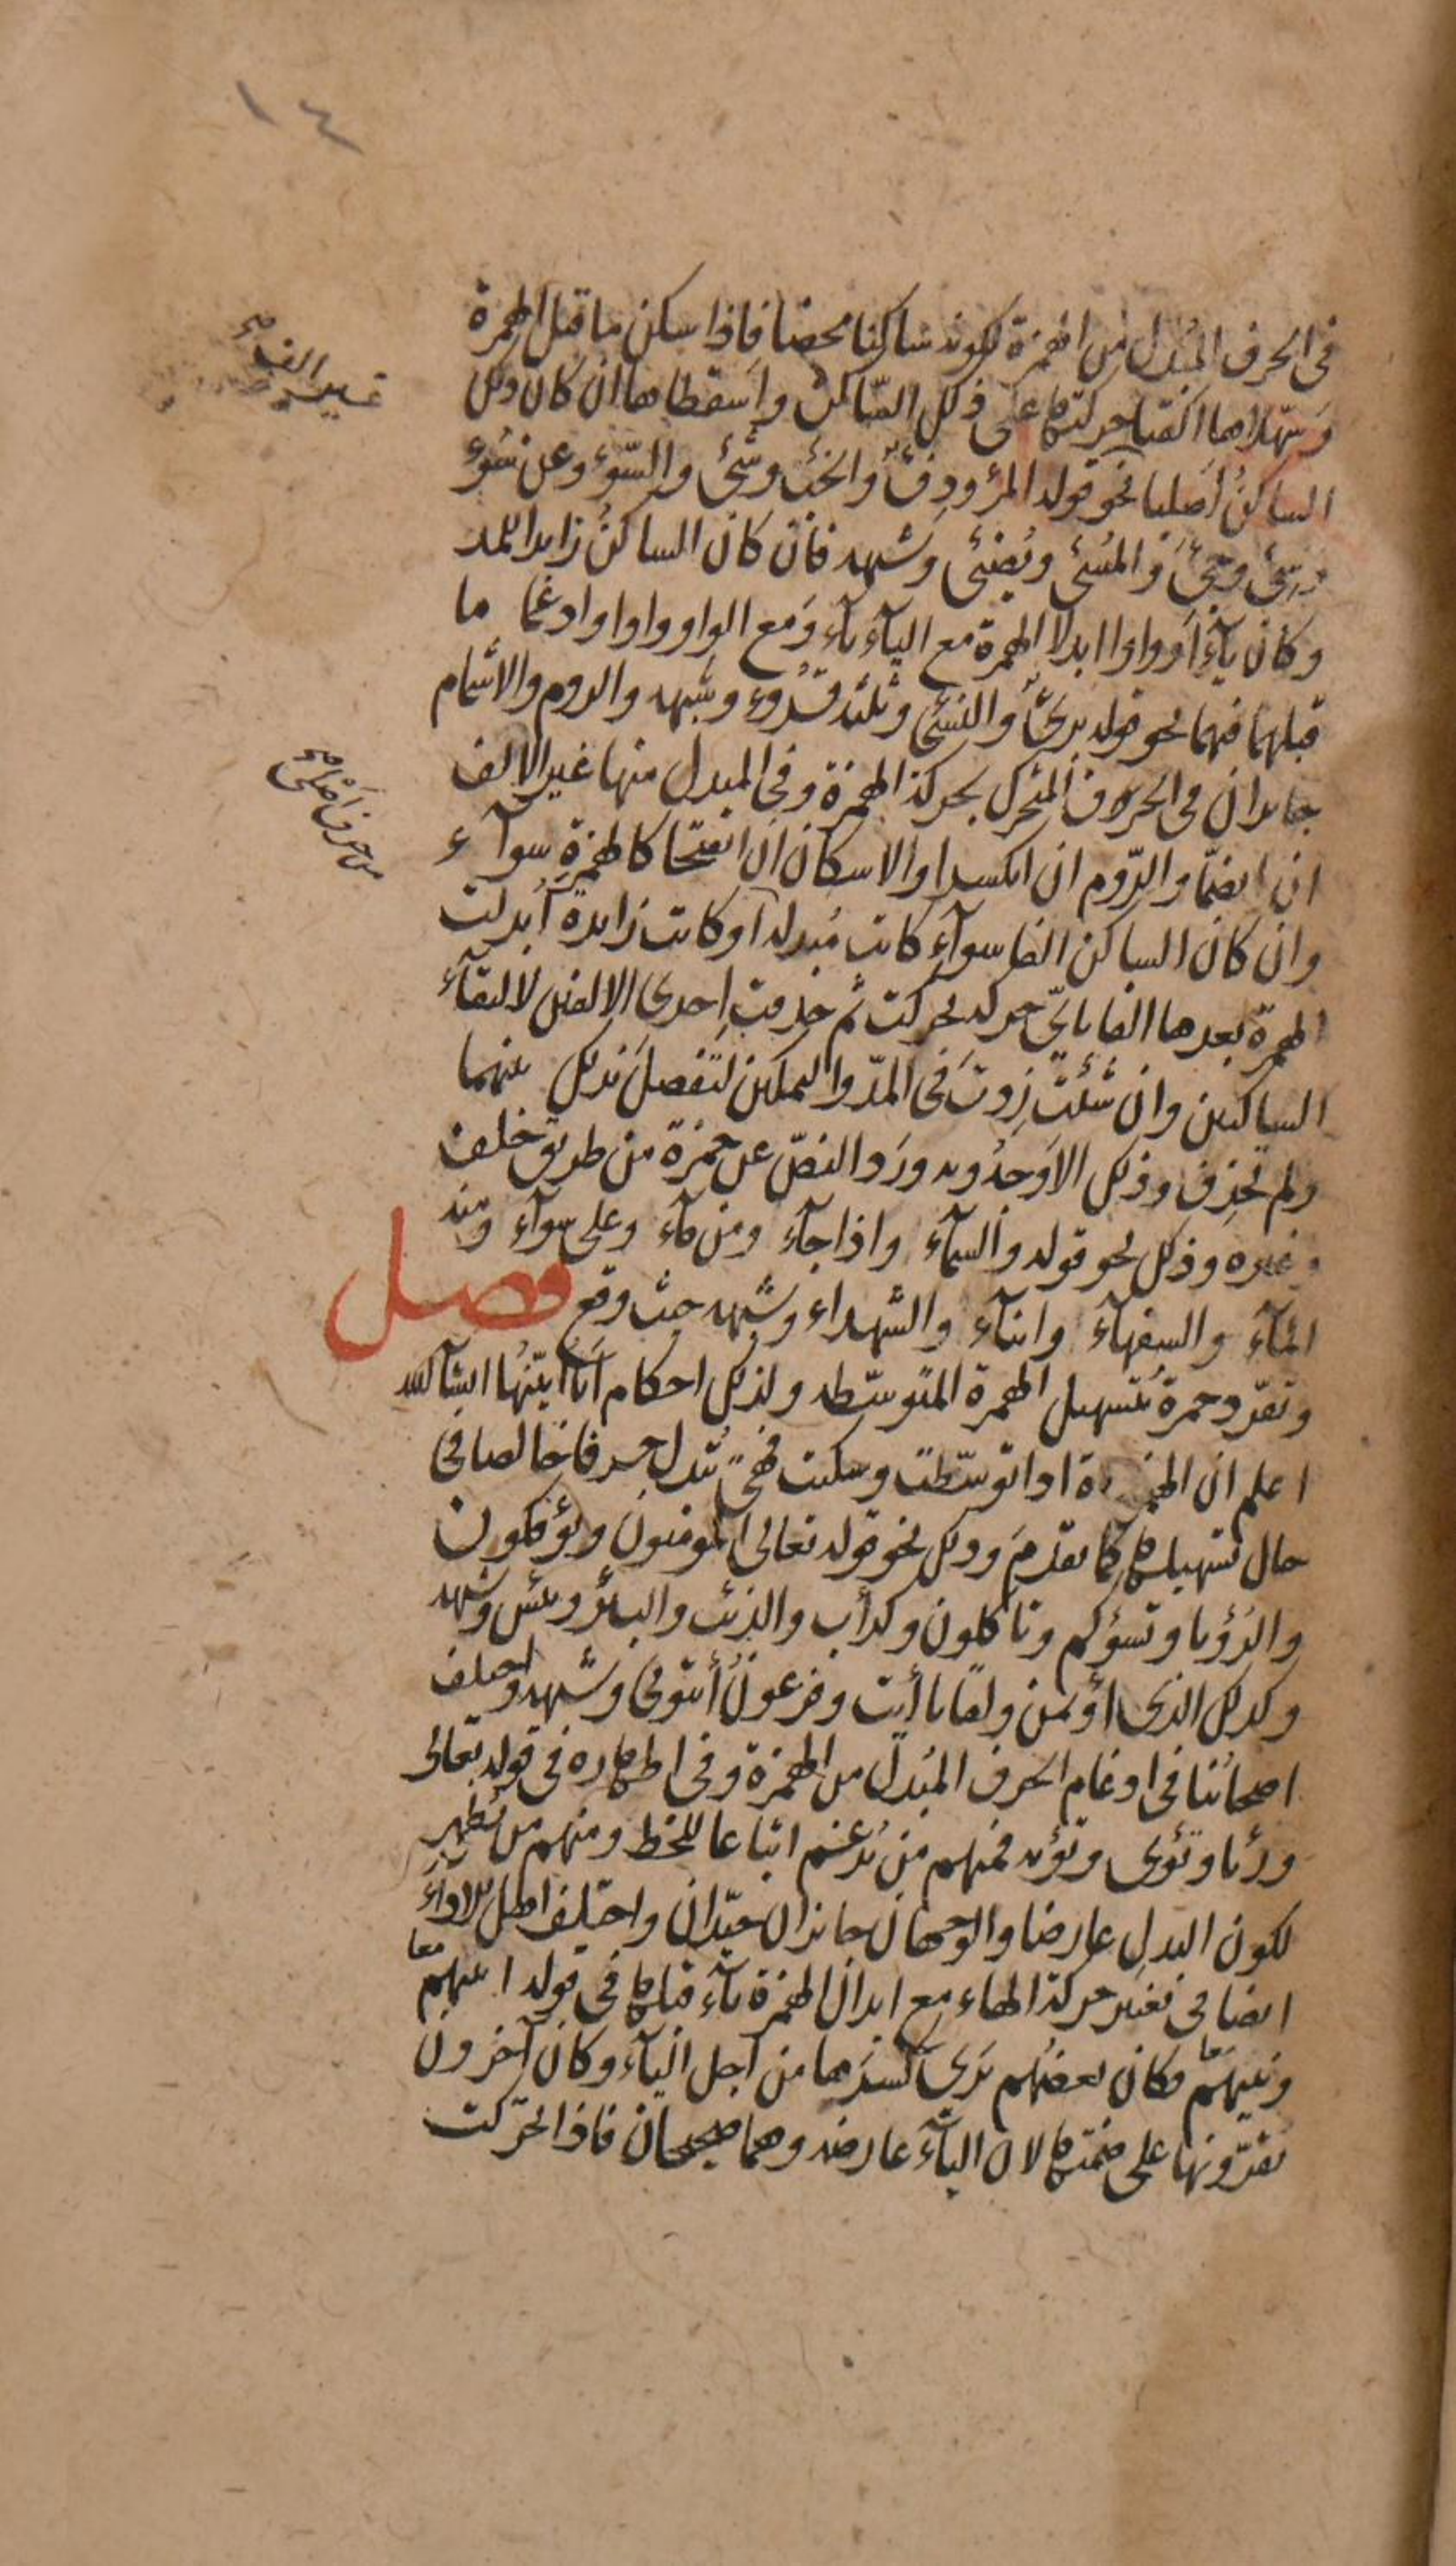 ١٤
في الحرف المُبدل من الهمزة لكونه ساكنا محضا فاذا سكن ما قبل الهمزة
وسهّلاها القيا حركتها على ذلك الساكن واسقطاها ان كان ذلك
الساكنُ اصليا نحو قوله المرء ودفءٌ والخبء وشىء والسّوء وعن سُوء
وسىء وجىء والمسىء ويُضىء وشبهه فان كان الساكنُ زايدا للمد
وكان ياءً او واوا ابدلا الهمزة مع الياء ياء ومع الواو واوا وادغما ما
قبلهما فيهما نحو قوله برىءٌ والنسىء وثلثة قُروء وشبهه والروم والاشمام
جايزان فى الحروف المتحرك بحركة الهمزة وفى المبدل منها غير الالف
ان انضمّا والرّوم ان انكسرا والاسكان ان انفتحا كالهمزة سوآء
وان كان الساكن الفا سوآء كانت مُبدلة او كانت زايدة اُبدلت
الهمزة بعدها الفا باىّ حركة تحركت ثم حذفت اِحدى الالفين لالتقآء
الساكنين وان شئتَ زدتَ فى المدّ والتمكين لتَفصلَ بذلك بينهما
ولم تحذِف وذلك الاوجهُ وبه ورَد النصّ عن حمزة من طريق خلف
وغيره وذلك نحو قوله والسمآء واذا جآء ومن مآء وعلى سوآء ومنه
المآء والسفهآء وابنآء والشهداء وشبهه حيث وقع فصل
وتفرّد حمزة بتسهيل الهمزة المتوسّطه ولذلك احكام اَنا اُبيّنُها انشآ الله
اعلم ان الهمزة اذا توسّطت وسكنت فهىَ تُبدل حرفا خالصا فى
حال تسهيلها كما تقدّمَ وذلك نحو قوله تعالى المومنون ويؤفكون
والرُؤيا وتسؤكم وتاكلون وكدأب والذئب والبئر وبئس وشبهه
وكذلك الذى اؤتمن ولقآنا أيت وفرعونُ أئتونى وشبهه واختلف
اصحابُنا فى ادغام الحرف المُبدل من الهمزة وفى اظهاره فى قوله تعالى
ورئيا وتؤوى وتؤيه فمنهم من يُدغم اتباعا للخط ومنهم من يُظهر
لكون البدلِ عارضا والوجهان جائزان جيّدان واختلف اهل الاداءَ
ايضا فى تغيير حركة الهاء مع ابدال الهمزة ياء قبلها فى قوله انبيهم معا
ونبيهم معا فكان بعضُهم يرى كسرَها من اجل الياء وكان آخرون
يقرّونها على ضمتها لان الياءَ عارضه وهما صحيحان فاذا تحرّكت
غير الف صح
من حرف اصلى صح